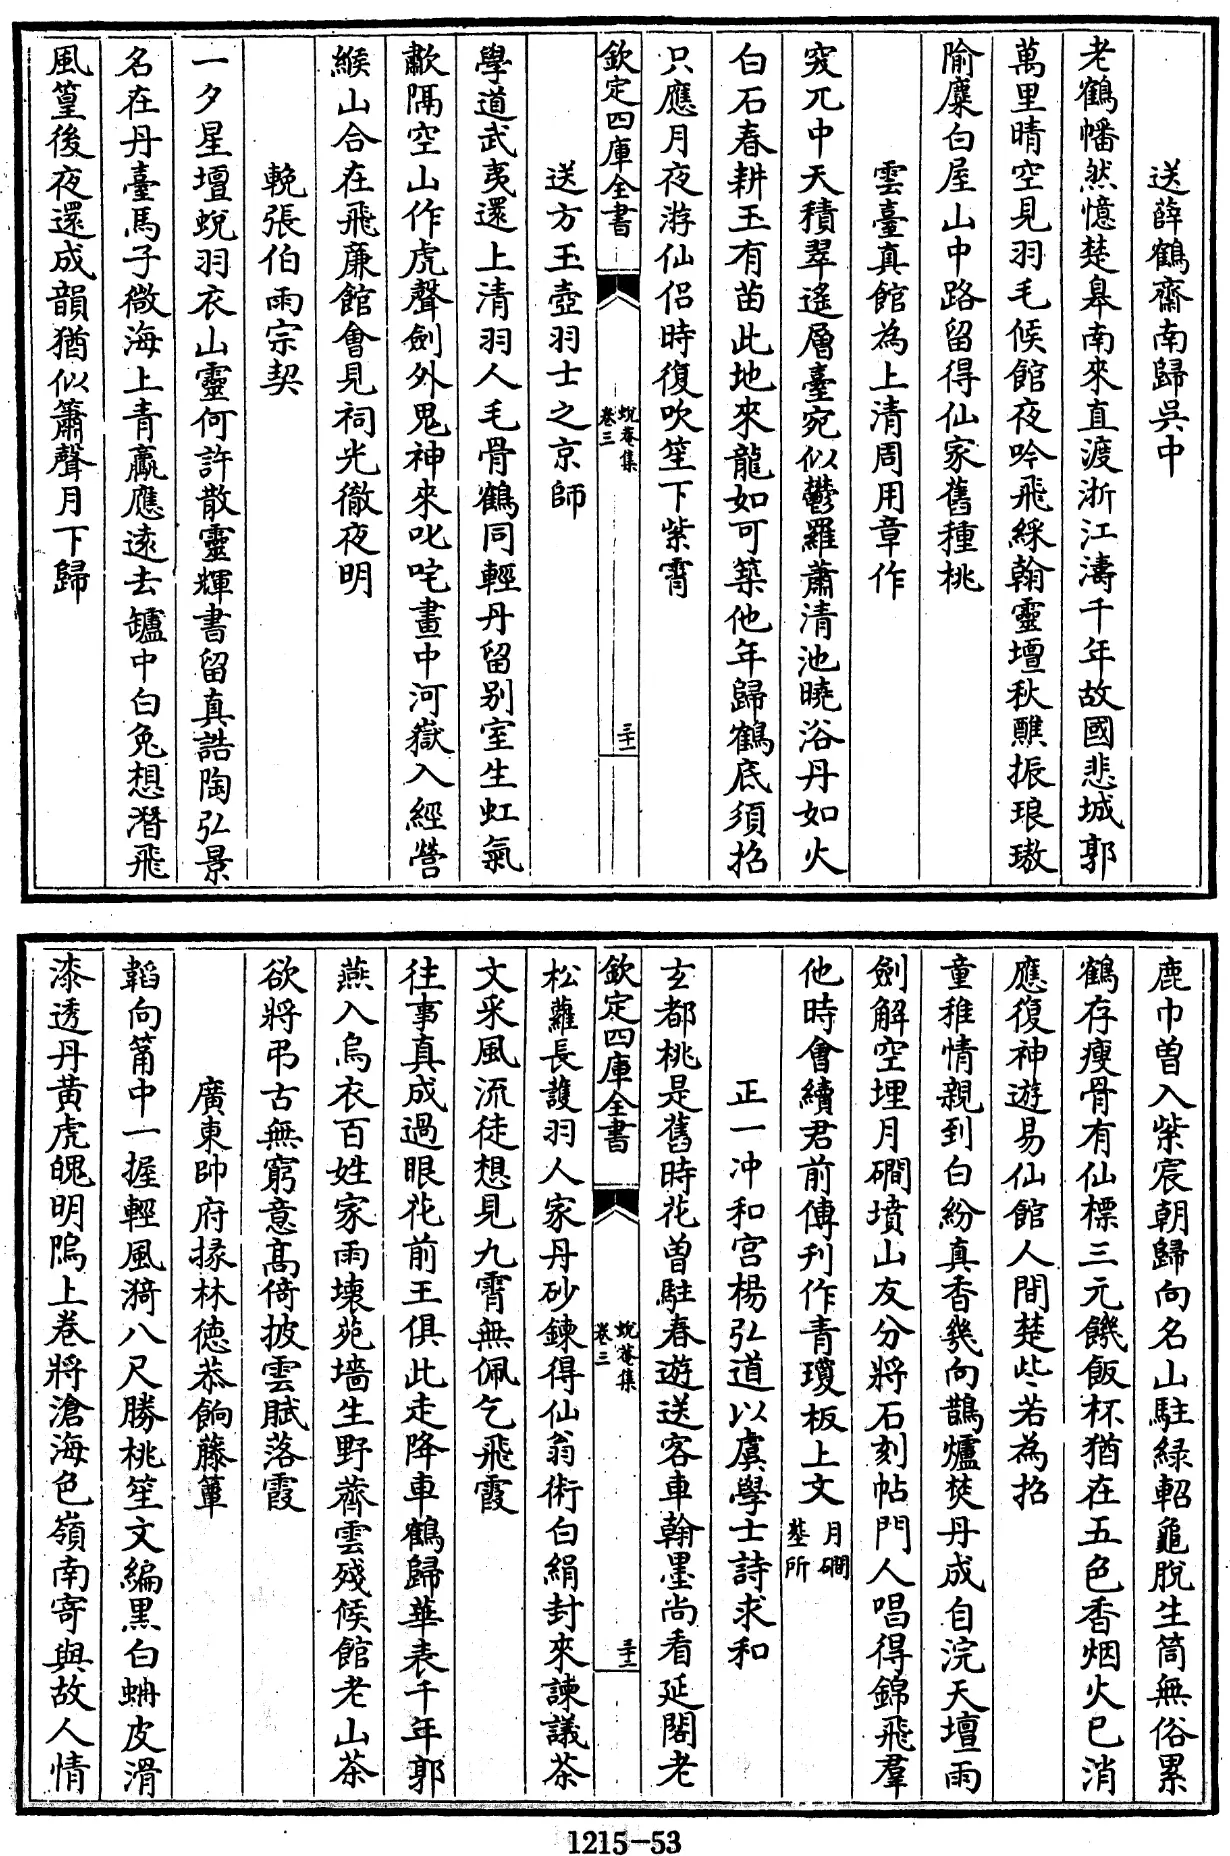 送薛鶴齋南歸吳中
老鶴幡然憶楚皋南來直渡浙江濤千年故國悲城郭
萬里晴空見羽毛候館夜吟飛綵翰靈壇秋醮振琅璈
隃麋白屋山中路留得仙家舊種桃
雲臺真館為上清周用章作
窔兀中天積翠遙層臺宛似鬱羅蕭清池曉浴丹如火
白石春耕玉有苗此地來龍如可築他年歸鶴底須招
只應月夜游仙侣時復吹笙下紫霄
欽定四庫全書
蛻菴集
卷三
三十一
送方玉壺羽士之京師
學道武夷還上清羽人毛骨鶴同輕丹留别室生虹氣
歗隔空山作虎聲劍外鬼神來叱咤畫中河嶽入經營
緱山合在飛廉館會見祠光徹夜明
輓張伯雨宗契
一夕星壇蛻羽衣山靈何許散靈輝書留真誥陶弘景
名在丹臺馬子微海上青蠃應遠去鑪中白兔想潛飛
風篁後夜還成韻猶似簫聲月下歸
鹿巾曽入紫宸朝歸向名山駐綠軺龜脫生筒無俗累
鶴存瘦骨有仙標三元饑飯杯猶在五色香烟火已消
應復神遊易仙館人間楚些若為招
童稚情親到白紛真香幾向鵲爐焚丹成自浣天壇雨
劍解空埋月磵墳山友分將石刻帖門人唱得錦飛羣
他時會續君前傳刋作青瓊板上文月磵
墓所
正一冲和宫楊弘道以虞學士詩求和
玄都桃是舊時花曽駐春遊送客車翰墨尚看延閣老
欽定四庫全書
蛻菴集
卷三
三十二
松蘿長護羽人家丹砂鍊得仙翁術白絹封來諫議茶
文采風流徒想見九霄無佩乞飛霞
往事真成過眼花前王俱此走降車鶴歸華表千年郭
燕入烏衣百姓家雨壞苑墻生野薺雲殘候館老山茶
欲將弔古無窮意髙倚披雲賦落霞
廣東帥府掾林徳恭餉藤簟
韜向筩中一握輕風漪八尺勝桃笙文編黒白蚺皮滑
漆透丹黄虎魄明隝上巻將滄海色嶺南寄與故人情
1215-53